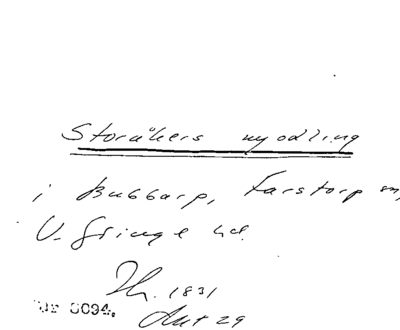 Storåkers nyodling
i Bubbarp, Farstorp sn,
V. Göinge hd.
Th. 1831
Akt 29